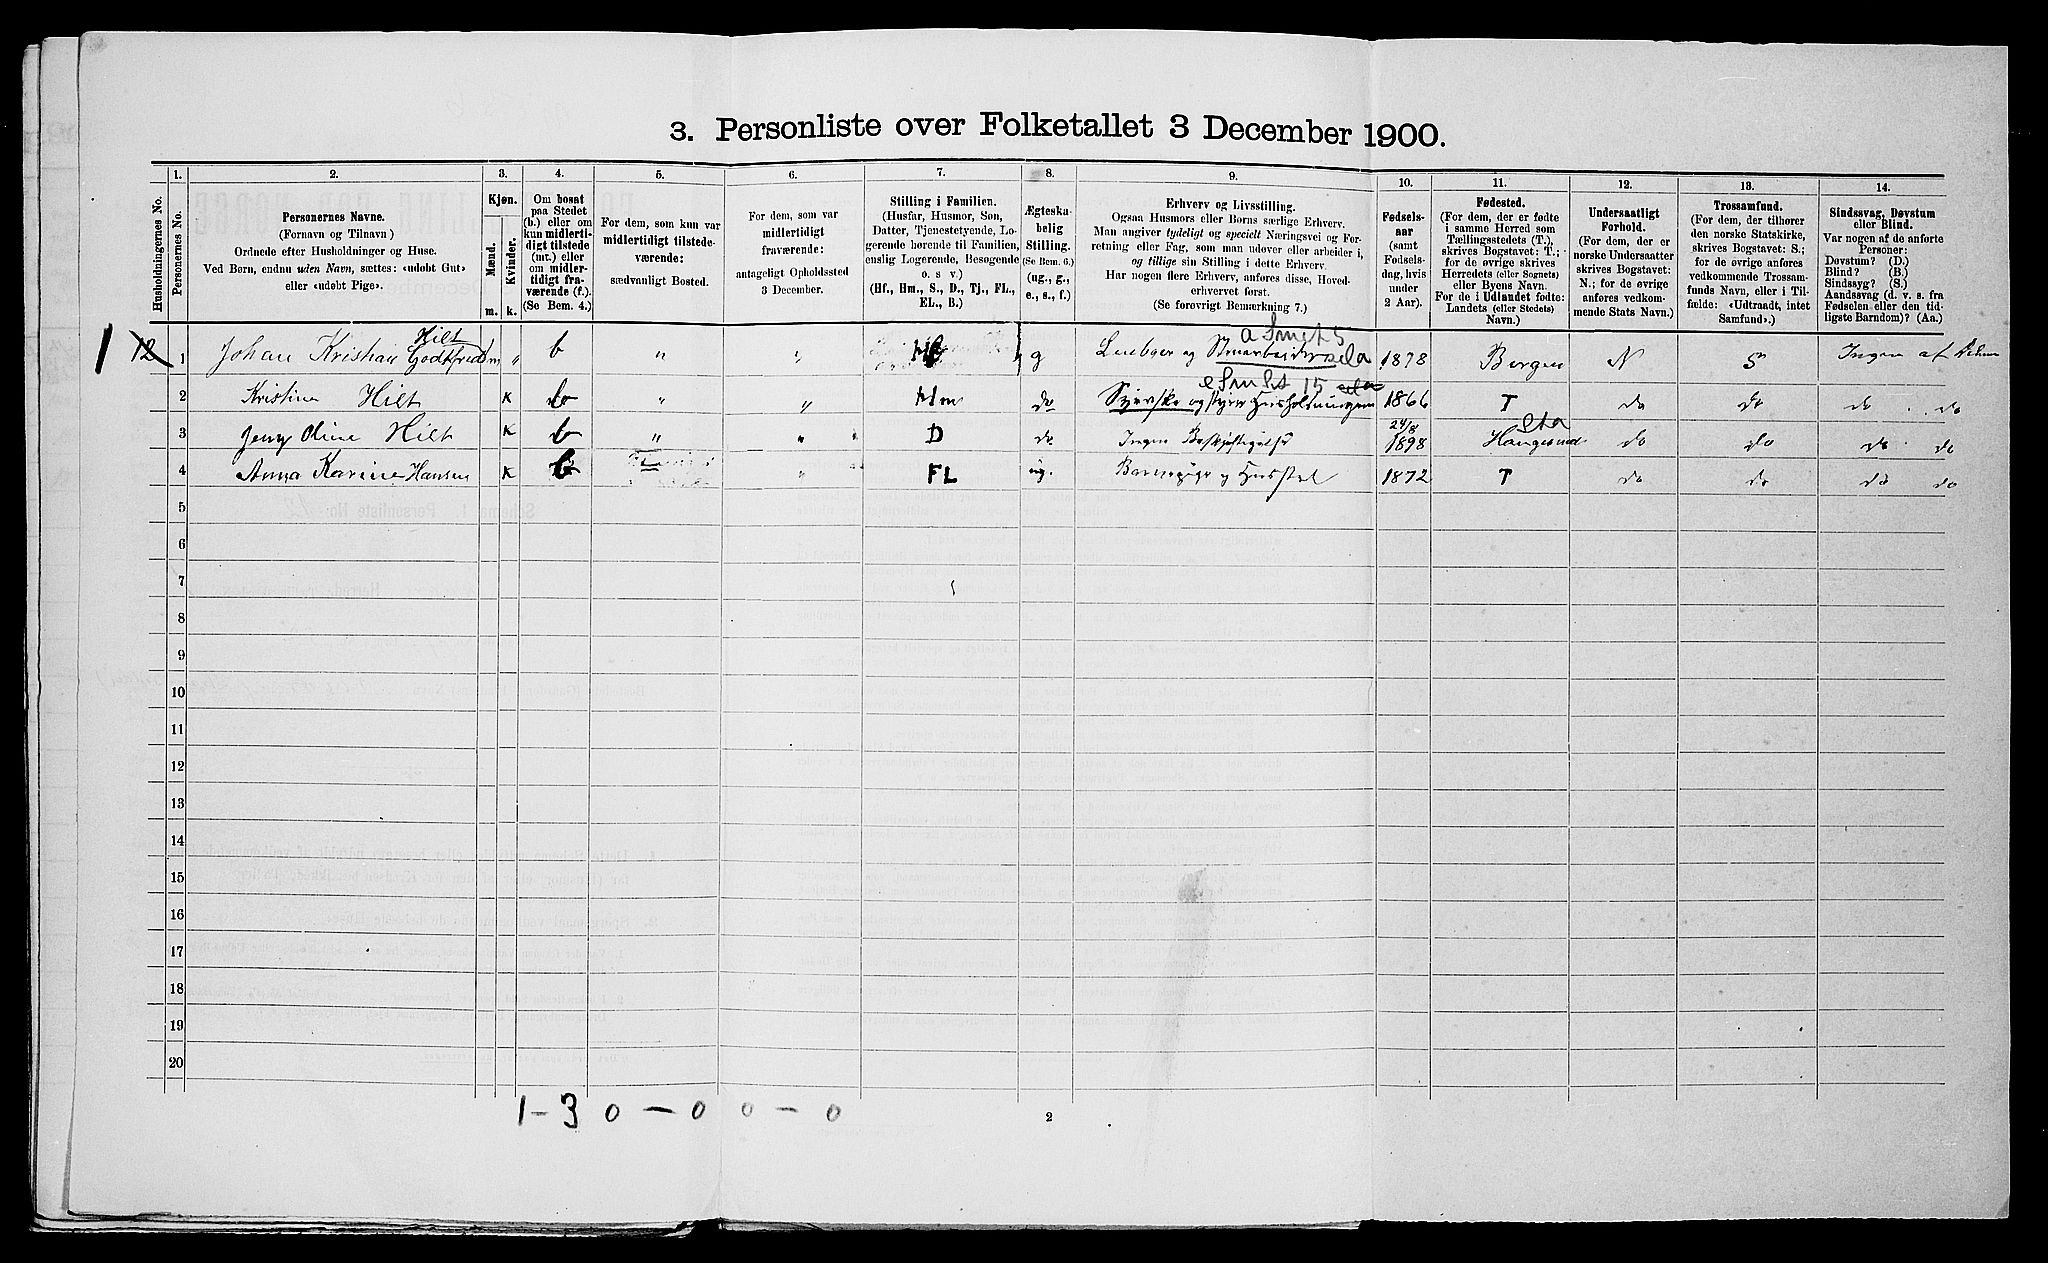 3. Personliste over Folketallet 3 December 1900.
Husholdningernes No.
1.
Personernes No.
2.
Personernes Navne.
(Fornavn og Tilnavn)
Ordnede efter Husholdninger og Huse.
Ved Børn, endnu uden Navn, sættes: «udøbt Gut»
eller «udøbt Pige».
3.
Kjøn.
Mænd.
Kvinder.
m. k.
4.
Om bosat
paa Stedet
(b.) eller om
kun midlerti-
digt tilstede
(mt.) eller
om midler-
tidigt fra-
værende (f.).
(Se Bem. 4.)
5.
For dem, som kun var
midlertidigt tilstede-
værende:
sædvanligt Bosted.
6.
For dem, som var
midlertidigt
fraværende:
antageligt Opholdssted
3 December.
7.
Stilling i Familien.
(Husfar, Husmor, Søn,
Datter, Tjenestetyende, Lo-
gerende hørende til Familien,
enslig Logerende, Besøgende
o. s v.)
(Hf., Hm., S., D., Tj., FL.,
EL., B.)
8.
Ægteska-
belig
Stilling.
(Se Bem. 6.)
(ug., g.,
e., s., f.)
9.
Erhverv og Livsstilling.
Ogsaa Husmors eller Børns særlige Erhverv.
Man angiver tydeligt og specielt Næringsvei og For-
retning eller Fag, som man udøver eller arbeider i,
og tillige sin Stilling i dette Erhverv.
Har nogen flere Erhverv, anføres disse, Hoved-
erhvervet først.
(Se forøvrigt Bemærkning 7.)
10.
Fødsels-
aar
(samt
Fødsels-
dag, hvis
under
2 Aar).
11.
Fødested.
(For dem, der er fødte
i samme Herred som
Tællingsstedets (T.),
skrives Bogstavet: T.;
for de øvrige skrives
Herredets (eller Sognets)
eller Byens Navn.
For de i Udlandet fødte:
Landets (eller Stedets)
Navn.)
12.
Undersaatligt
Forhold.
(For dem, der er
norske Undersaatter
skrives Bogstavet:
N.; for de øvrige
anføres vedkom-
mende Stats Navn.)
13.
Trossamfund.
(For dem, der tilhører
den norske Statskirke,
skrives Bogstavet: S.;
for de øvrige anføres
vedkommende Trossam-
funds Navn, eller i Til-
fælde: «Udtraadt, intet
Samfund».)
14.
Sindssvag, Døvstum
eller Blind.
Var nogen af de anførte
Personer:
Døvstum? (D.)
Blind? (B.)
Sindssyg? (S.)
Aandssvag (d. v. s. fra
Fødselen eller den tid-
ligste Barndom)? (Aa.)
Hilt a Smgt 5
1 12 1 Johan Kristian Godtfred m " b " " g 1878 Bergen N S Ingen af
15
2 Kristine Hilt K b " " Hm do Syerske og styrer Husholdningen 1866 T do do do do
24/8
3 Jeny Oline Hilt K b " " D do Ingen Beskjeftigelse 1898 Haugesund do do do do
4 Anna Karine Hansen K b " FL ug. Barnepige og Husstel 1872 T do do do do
5
6
7
8
9
10
11
12
13
14
15
16
17
18
19
20
1 - 3 0 - 0 0 - 0
2